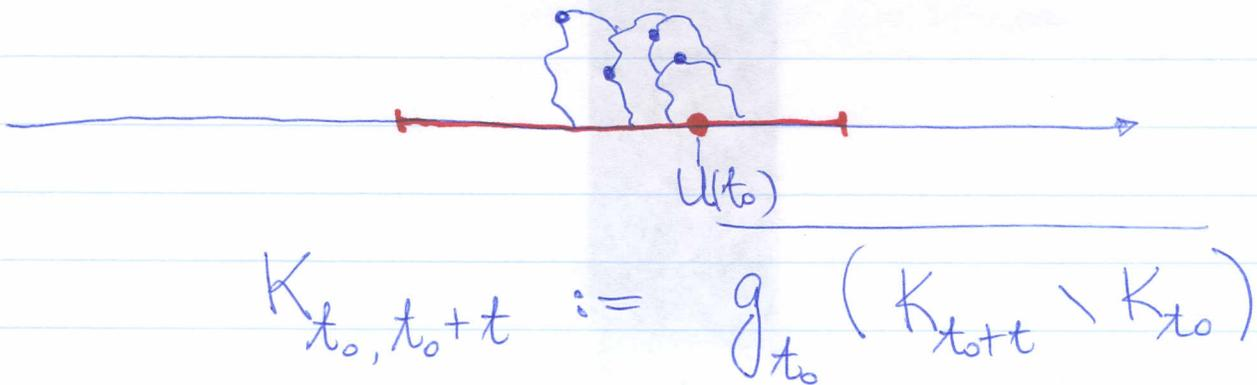 U(t₀)
K_{t₀, t₀+t} := g_{t₀} ( K_{t₀+t} \ K_{t₀} )